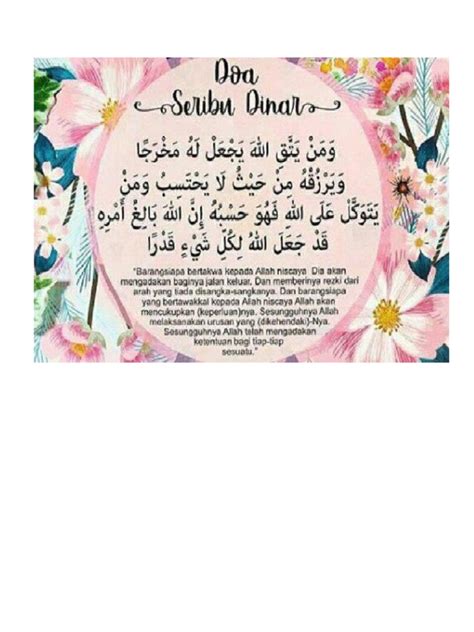 Doa
Seribu Dinar
وَمَنْ يَتَّقِ اللهَ يَجْعَلْ لَهُ مَخْرَجًا
وَيَرْزُقْهُ مِنْ حَيْثُ لَا يَحْتَسِبُ وَمَنْ
يَتَوَكَّلْ عَلَى اللهِ فَهُوَ حَسْبُهُ إِنَّ اللهَ بَالِغُ أَمْرِهِ
قَدْ جَعَلَ اللهُ لِكُلِّ شَيْءٍ قَدْرًا
"Barangsiapa bertakwa kepada Allah niscaya Dia akan
mengadakan baginya jalan keluar. Dan memberinya rezki dari
arah yang tiada disangka-sangkanya. Dan barangsiapa
yang bertawakkal kepada Allah niscaya Allah akan
mencukupkan (keperluan)nya. Sesungguhnya Allah
melaksanakan urusan yang (dikehendaki)-Nya.
Sesungguhnya Allah telah mengadakan
ketentuan bagi tiap-tiap
sesuatu."